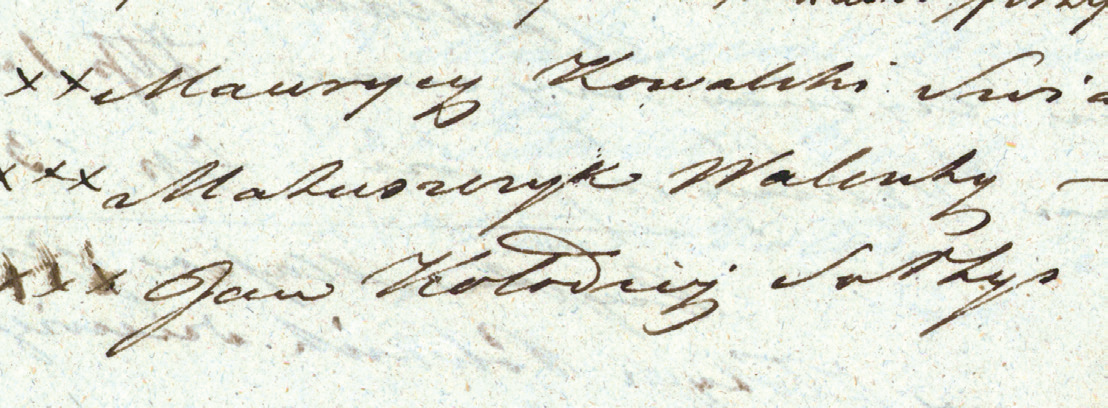 xx Maurycy Kowalski Swia
xxx Matuszczyk Walenty —
xxx Jan Kołodziej Sołtys